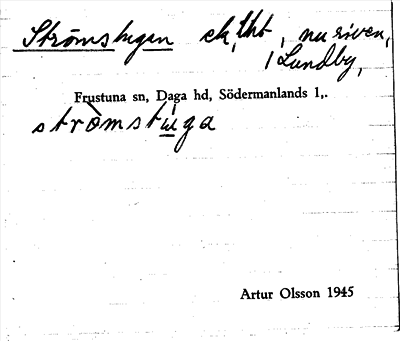 Strömstugan ek, tht, nu riven,
i Lundby,
Frustuna sn, Daga hd, Södermanlands l,.
strömstuga
Artur Olsson 1945